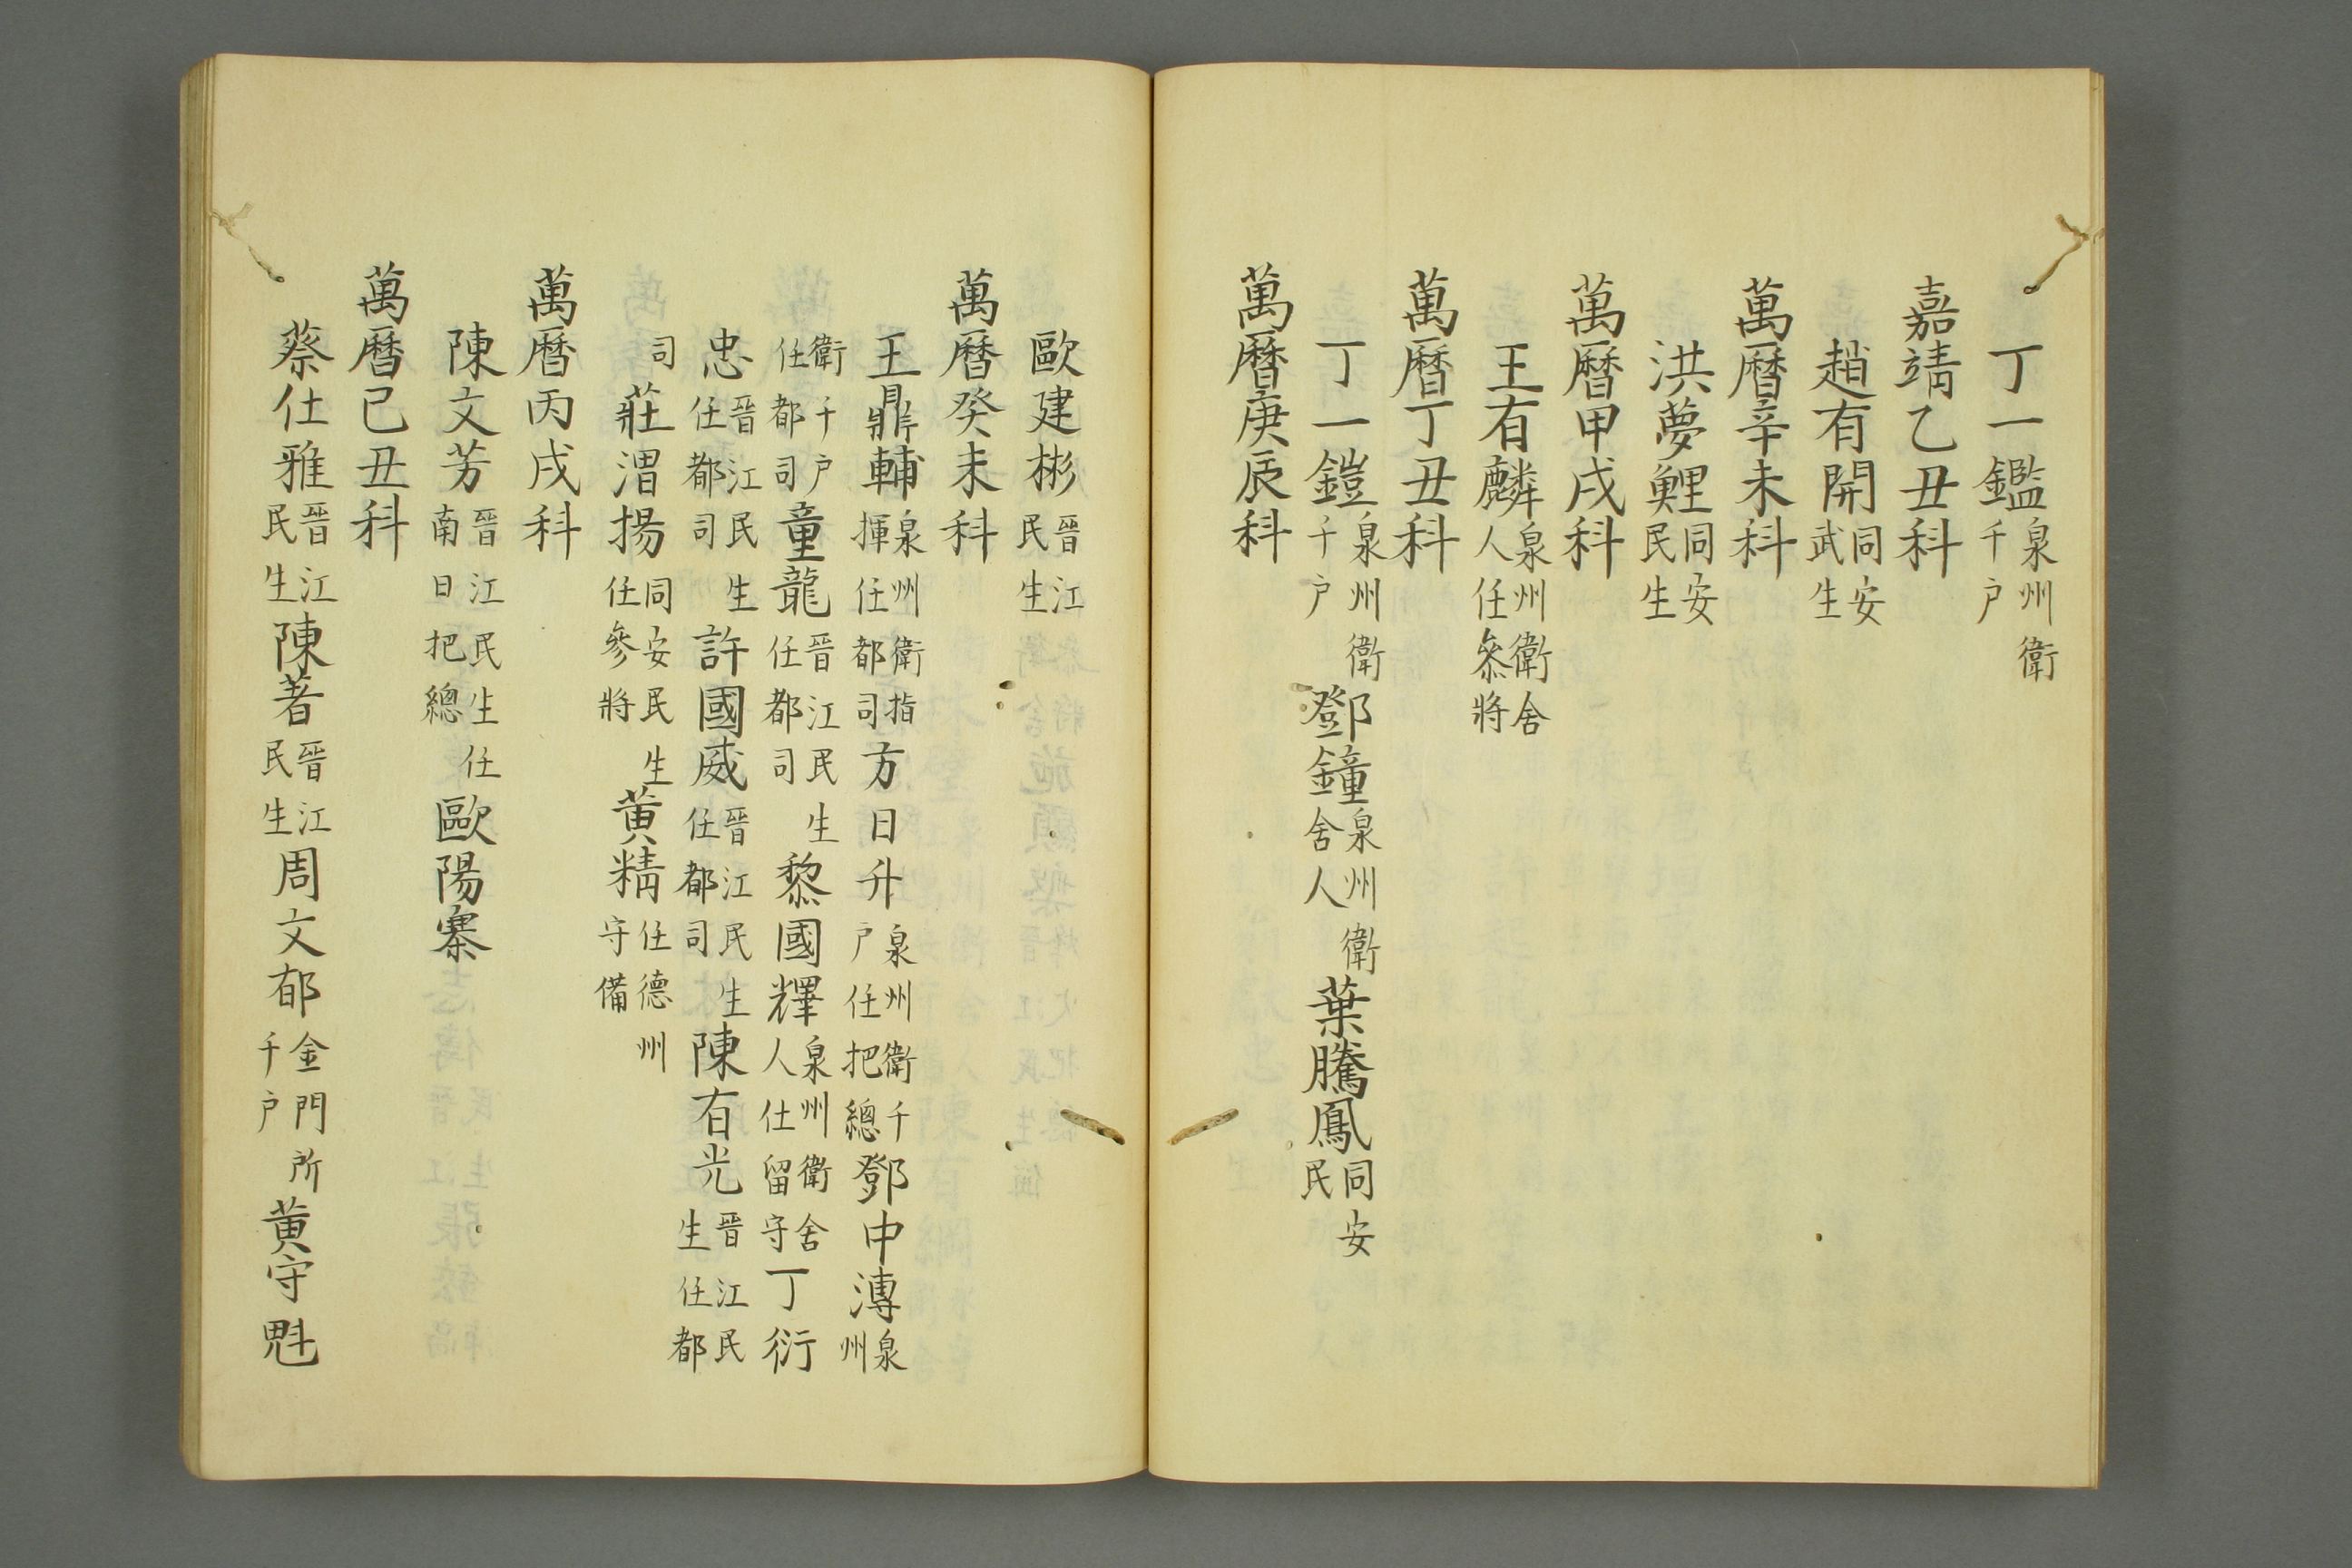 丁一鑑泉州衛千户
嘉靖乙丑科
趙有開同安武生
萬曆辛未科
洪夢鯉同安民生
萬曆甲戌科
王有麟泉州衛舍人任叅將
萬曆丁丑科
丁一鎧泉州衛千户鄧鐘泉州衛舍人葉騰鳳同安民
萬曆庚辰科
歐建彬晉江民生
萬曆癸未科
王鼎輔泉州衛指揮任都司方日升泉州衛千户任把總鄧中漙泉州
衛千户任都司童龍晉江民生任都司黎國輝泉州衛舍人仕留守丁衍
忠晉江民生任都司許國威晉江民生任都司陳有光晉江民生任都
司莊渭揚同安民生任參將黄精任德州守備
萬曆丙戌科
陳文芳晉江民生任南日把總歐陽寨
萬曆己丑科
蔡仕雅晉江民生陳著晉江民生周文郁金門所千户黄守魁